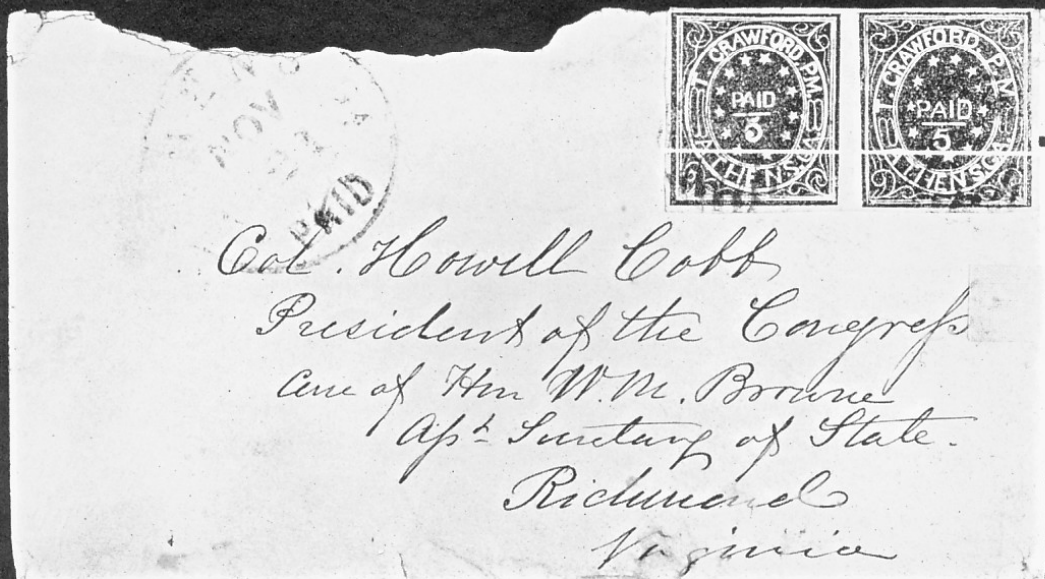 T. CRAWFORD. P.M.
PAID
5
ATHENS.GA.
T. CRAWFORD. P.M.
PAID
5
ATHENS.GA.
NOV
PAID
Col. Howell Cobb
President of the Congress
care of Hon W. M. Browne
Asst Secretary of State.
Richmond
Virginia